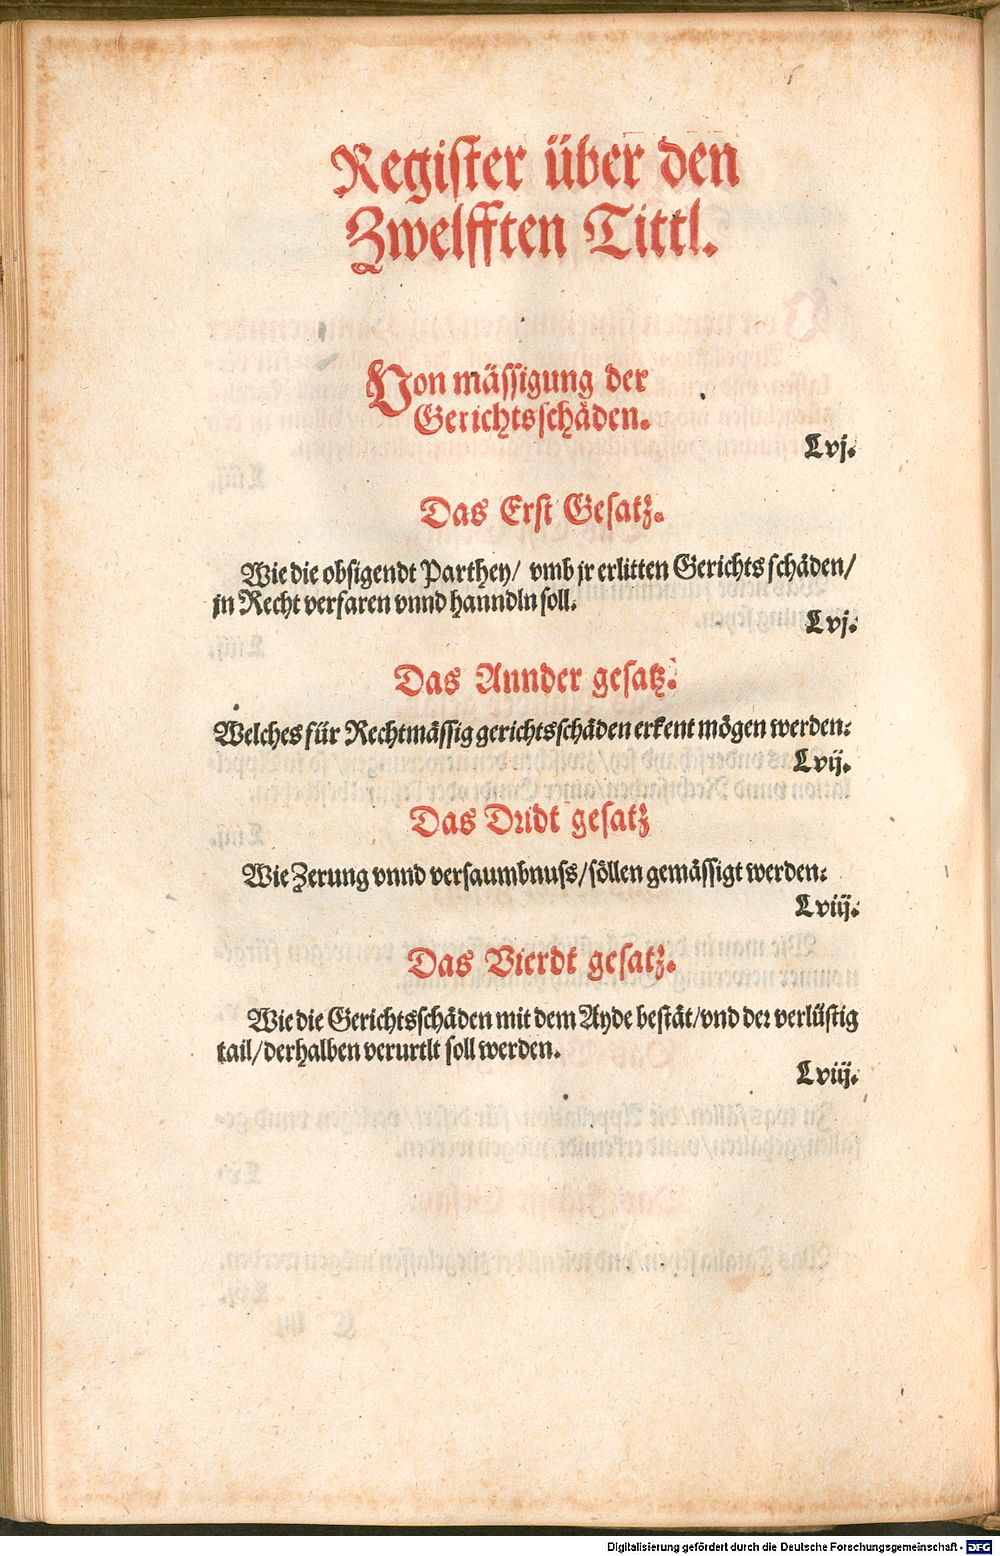 Register über den
Zwelfften Tittl.
Von mässigung der
Gerichtsschäden.
Lvj.
Das Erst Gesatz.
Wie die obsigendt Parthey/ vmb jr erlitten Gerichts schäden/
jn Recht verfaren vnnd hanndln soll.
Lvj.
Das Annder gesatz.
Welches für Rechtmässig gerichtsschäden erkent mögen werden.
Lvij.
Das Dridt gesatz
Wie Zerung vnnd versaumbnuss/söllen gemässigt werden.
Lviij.
Das Vierdt gesatz.
Wie die Gerichtsschäden mit dem Ayde bestät/vnd der verlüstig
tail/derhalben verurtlt soll werden.
Lviij.
Digitalisierung gefördert durch die Deutsche Forschungsgemeinschaft - DFG